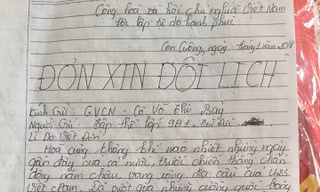 Cộng hòa xã hội chủ nghĩa Việt Nam
độc lập tự do hạnh phúc
Con Cuông, ngày tháng 1 năm 2018
ĐƠN XIN ĐỔI LỊCH
Kính Gửi: GVCN - Cô Võ Thị Bay
Người Gửi: Tập thể lớp 9A1
Lí Do Viết Đơn:
Hoà cùng không khí náo nhiệt những ngày
gần đây của cả nước, trước chiến thắng chấn
động năm châu, vang vọng địa cầu của U23
Việt Nam. Đã vượt qua những cường quốc bóng